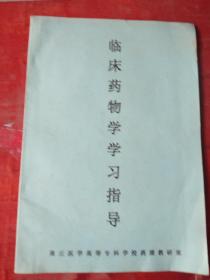 临床药物学学习指导
连云医学高等专科学校药理教研室